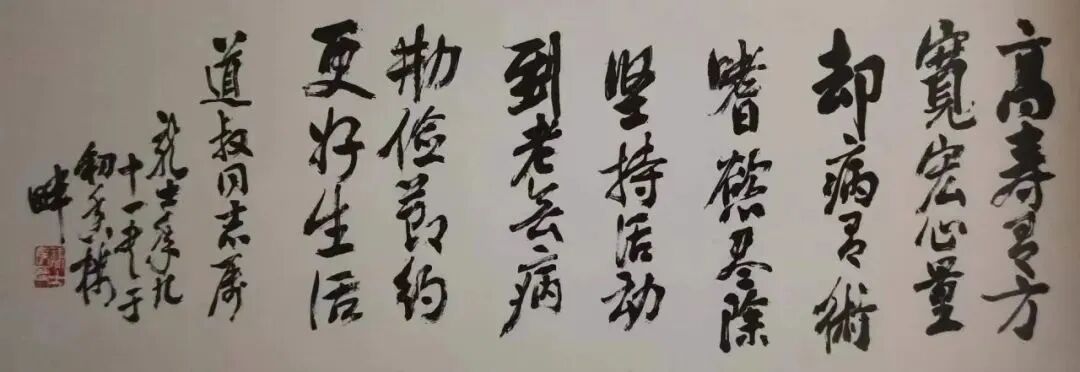 高寿有方
寬宏心量
却病有術
嗜慾尽除
坚持活动
到老无病
勤俭節约
更好生活
道叔同志属
龍士年九
十一年于
韧香楼
畔